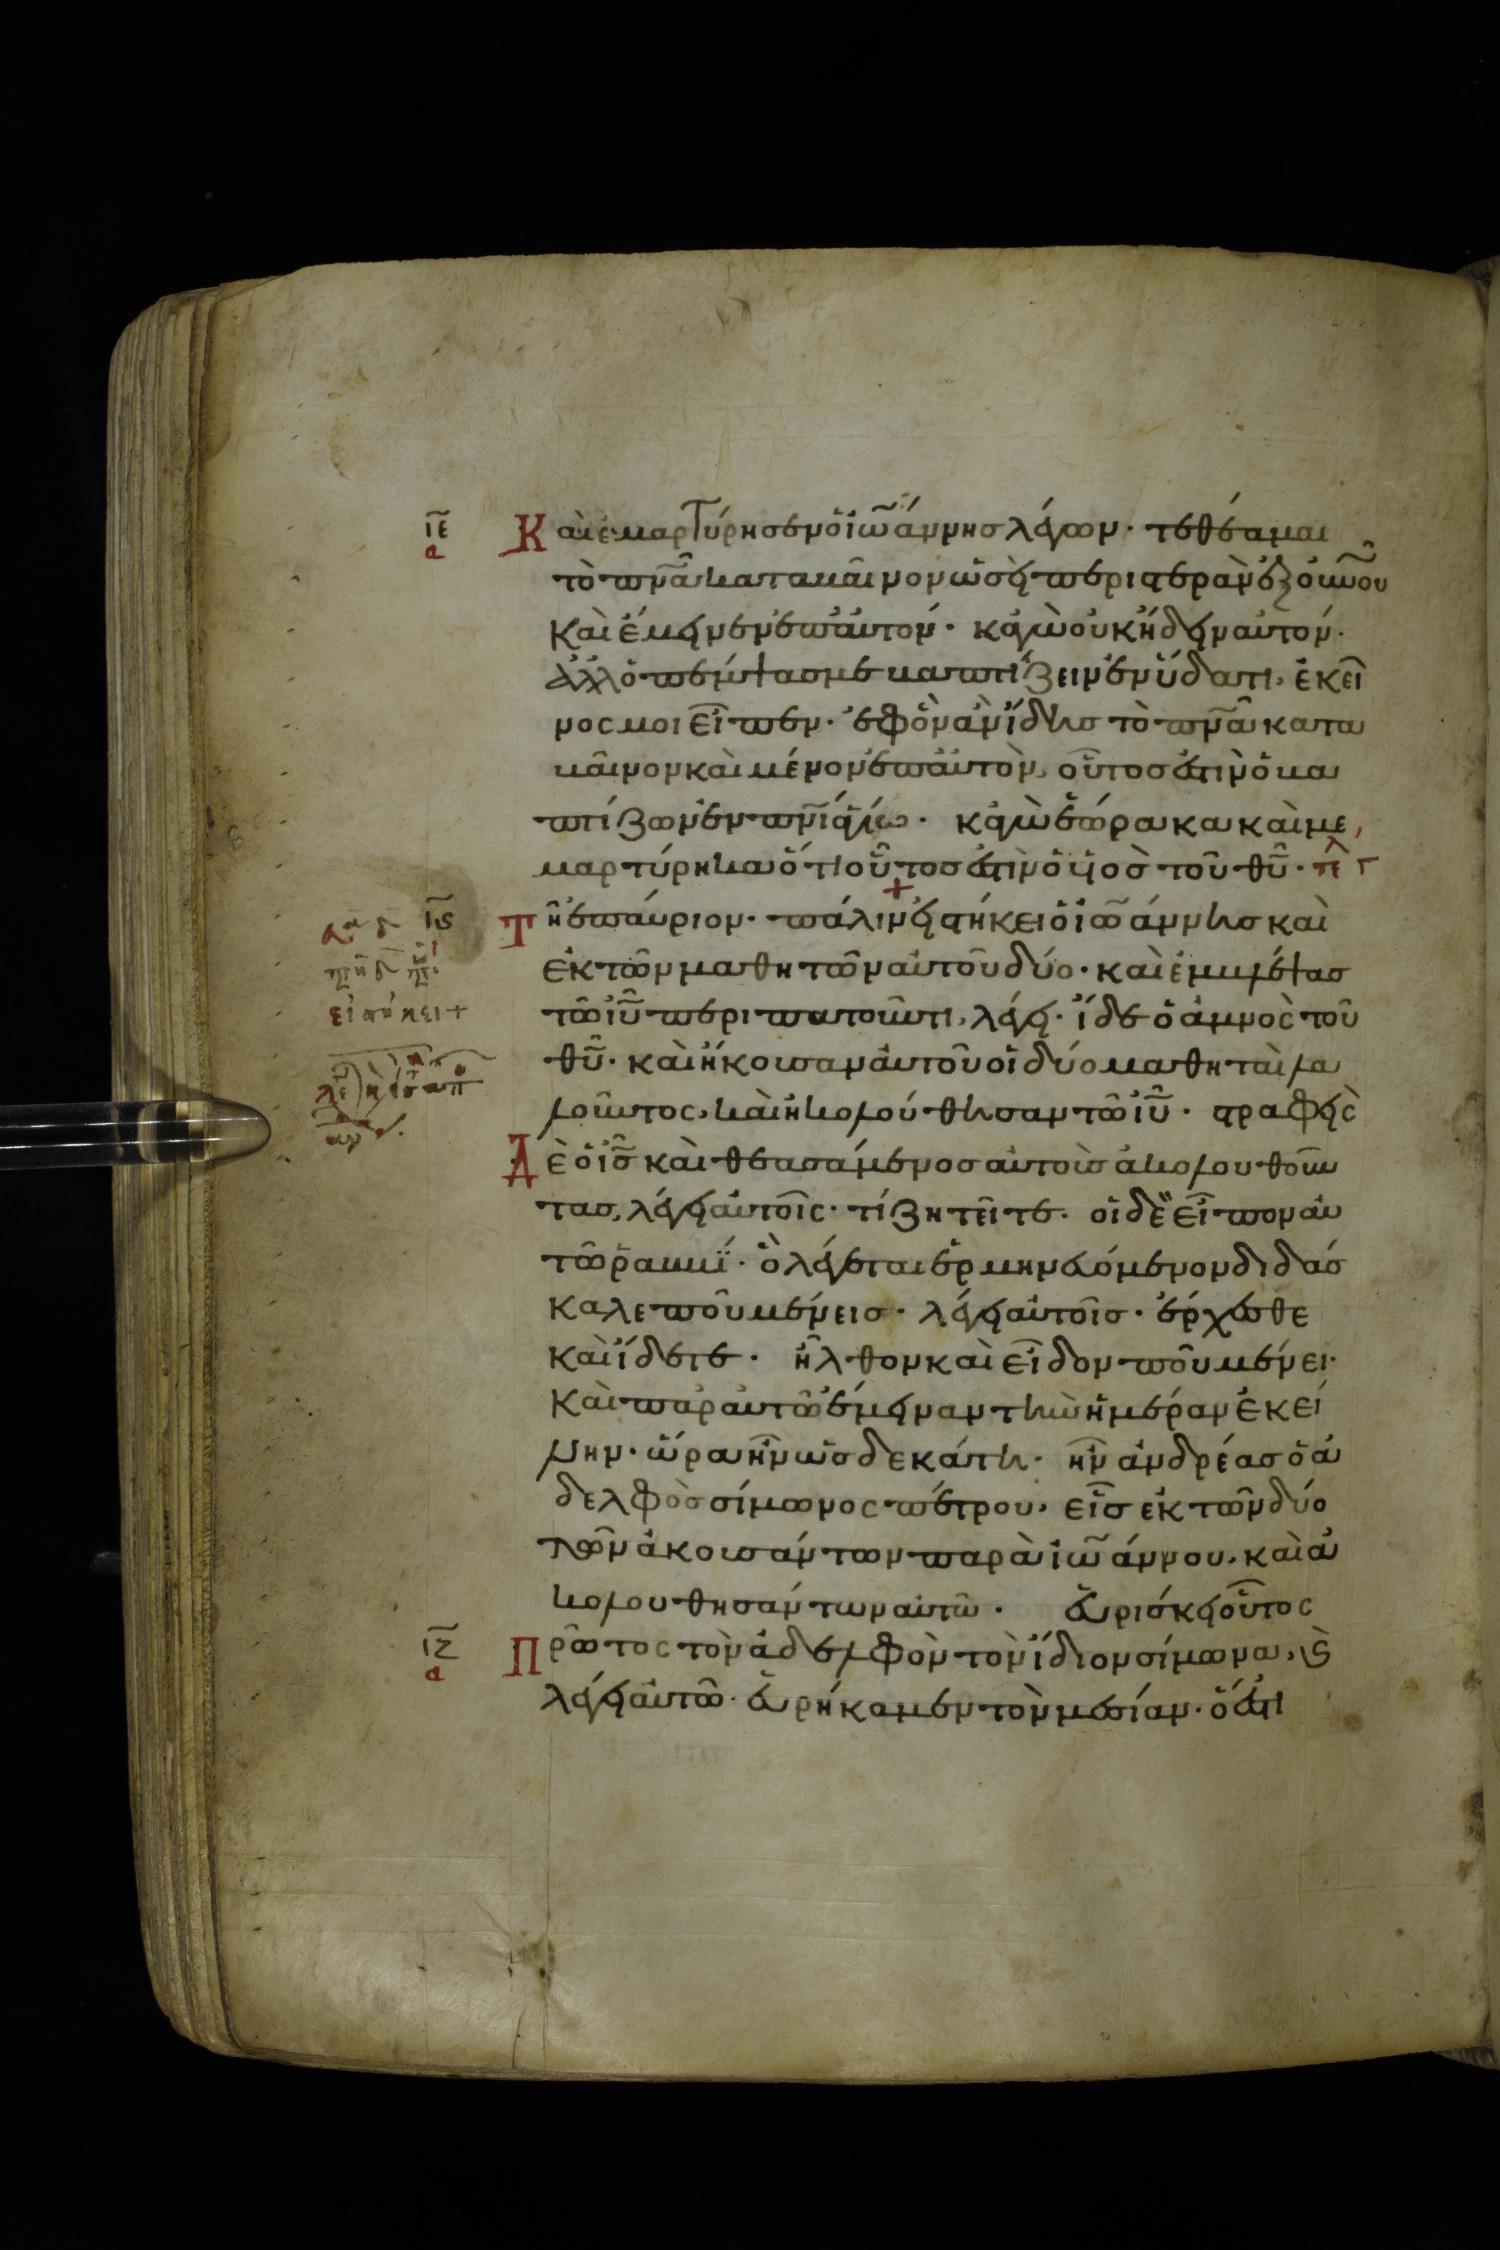 ιε
α
Καὶ ἐμαρτύρησεν ὁ ἰω̃άννης λέγων· τεθέαμαι
τὸ πν̃α καταβαῖνον ὡσεὶ περιστερὰν ἐξ οὐν̃ου
καὶ ἔμεινεν ἐπ' αὐτόν· κἀγὼ οὐκ ἤδειν αὐτόν·
ἀλλ' ὁ πέμψας με βαπτίζειν ἐν ὕδατι, ἐκεῖ
νος μοι εἶπεν· ἐφ' ὃν ἂν ἴδης τὸ πν̃α κατα
βαῖνον καὶ μένον ἐπ' αὐτὸν, οὗτος ἐστὶν ὁ βα
πτίζων ἐν πν̃ι ἁγίω· κἀγὼ ἑώρακα καὶ με
μαρτύρηκα ὅτι οὗτος ἐστὶν ὁ υἱος τοῦ θῦ·
ις
Τῆ ἐπαύριον· πάλιν εἱστήκει ὁ ἰω̃άννης καὶ
ἐκ τῶν μαθητῶν αὐτοῦ δύο· καὶ ἐμβλέψας
τῶ ἰῦ περιπατοῦντι, λέγει· ἴδε ὁ ἀμνὸς τοῦ
θῦ· καὶ ἤκουσαν αὐτοῦ οἱ δύο μαθηταὶ λα
λοῦντος, καὶ ἠκολούθησαν τῶ ἰῦ· στραφεὶς
Δὲ ὁ ἰς̃ καὶ θεασάμενος αὐτοὺς ἀκολουθοῦν
τας, λέγει αὐτοῖς· τί ζητεῖτε· οἱ δὲ εἶπον αὐ
τῶ ῥαββί· ὃ λέγεται ἑρμηνευόμενον διδάσ
καλε ποῦ μένεις· λέγει αὐτοῖς· ἔρχεσθε
καὶ ἴδετε· ἦλθον καὶ εἶδον ποῦ μένει·
καὶ παρ' αὐτῶ ἔμειναν τὴν ἡμέραν ἐκεί
νην· ὥρα ἦν ὡς δεκάτη· ἦν ἀνδρέας ὁ ἀ
δελφὸς σίμωνος πέτρου, εἷς ἐκ τῶν δύο
τῶν ἀκουσάντων παρὰ ἰω̃άννου, καὶ ἀ
κολουθησάντων αὐτῶ· εὑρίσκει οὗτος
ιζ
α
Πρῶτος τὸν ἀδελφὸν τὸν ἴδιον σίμωνα, ϗ
λέγει αὐτῶ· εὑρήκαμεν τὸν μεσίαν· ὅ ἐστι